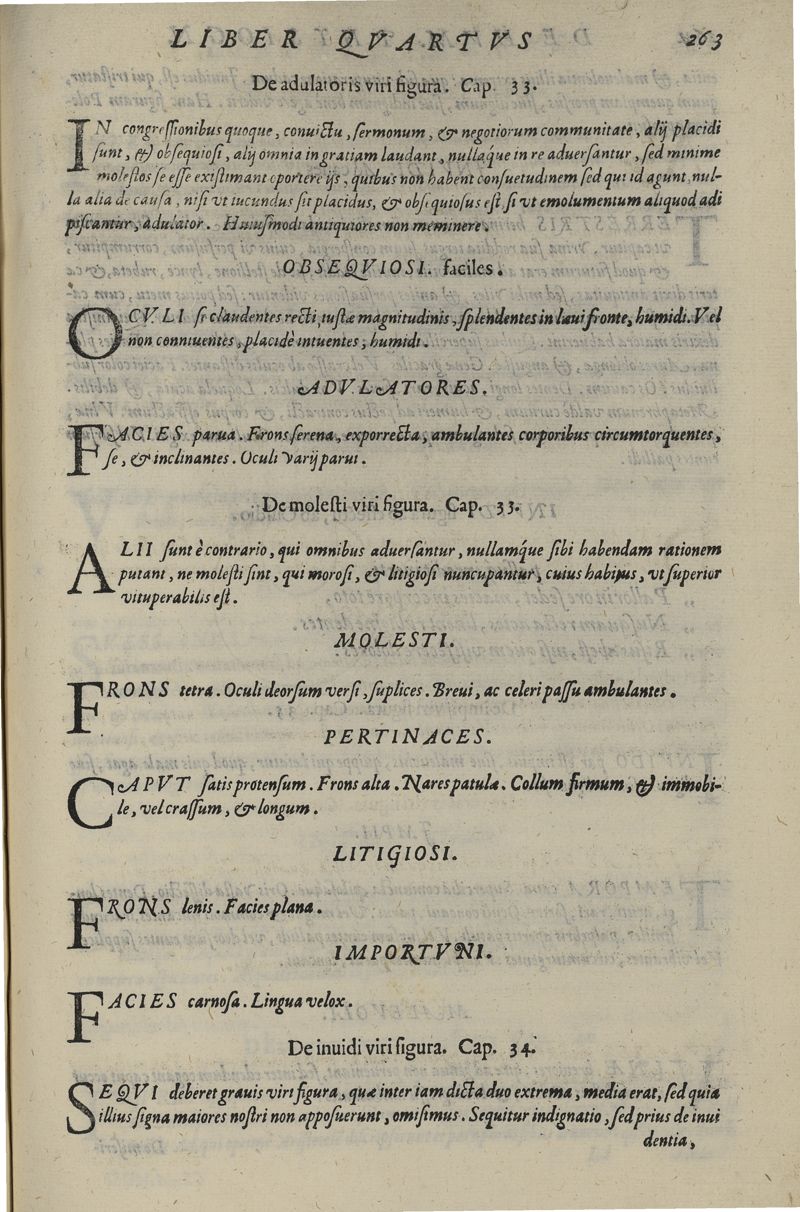 LIBER QVARTVS 263
De adulatoris viri figura. Cap. 33.
IN congreſſionibus quoque, conuictu, ſermonum, & negotiorum communitate, alij placidi
ſunt, & obſequioſi, alij omnia in gratiam laudant, nullaq́ue in re aduerſantur, ſed minime
moleſtos ſe eſſe exiſtimant oportere ijs, quibus non habent conſuetudinem ſed qui id agunt, nul-
la alia de cauſa, niſi vt iucundus ſit placidus, & obſequioſus eſt, ſi vt emolumentum aliquod adi
piſcantur, adulator. Huiuſmodi antiquiores non meminere.
OBSEQVIOSI. faciles.
OCVLI ſe claudentes recti, iuſtæ magnitudinis, ſplendentes in læui fronte, humidi. Vel
non conniuentes, placidè intuentes, humidi.
ADVLATORES.
FACIES parua. Frons ſerena, exporrecta, ambulantes corporibus circumtorquentes,
ſe, & inclinantes. Oculi varij parui.
De moleſti viri figura. Cap. 33.
ALII ſunt è contrario, qui omnibus aduerſantur, nullamq́ue ſibi habendam rationem
putant, ne moleſti ſint, qui moroſi, & litigioſi nuncupantur, cuius habitus, vt ſuperior
vituperabilis eſt.
MOLESTI.
FRONS tetra. Oculi deorſum verſi, ſuplices. Breui, ac celeri paſſu ambulantes.
PERTINACES.
CAPVT ſatis protenſum. Frons alta. Nares patulæ. Collum firmum, & immobi-
le, vel craſſum, & longum.
LITIGIOSI.
FRONS lenis. Facies plana.
IMPORTVNI.
FACIES carnoſa. Lingua velox.
De inuidi viri figura. Cap. 34.
SEQVI deberet grauis viri figura, quæ inter iam dicta duo extrema, media erat, ſed quia
illius ſigna maiores noſtri non appoſuerunt, omiſimus. Sequitur indignatio, ſed prius de inui
dentia,